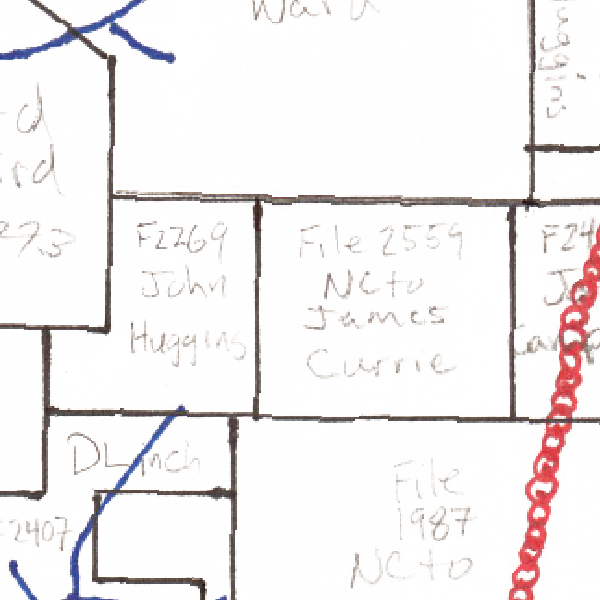 Ward
uggins
rd
ird
273
F2269
John
Huggins
File 2559
NC to
James
Currie
F24
DLinch
F2407
File
1987
NC to